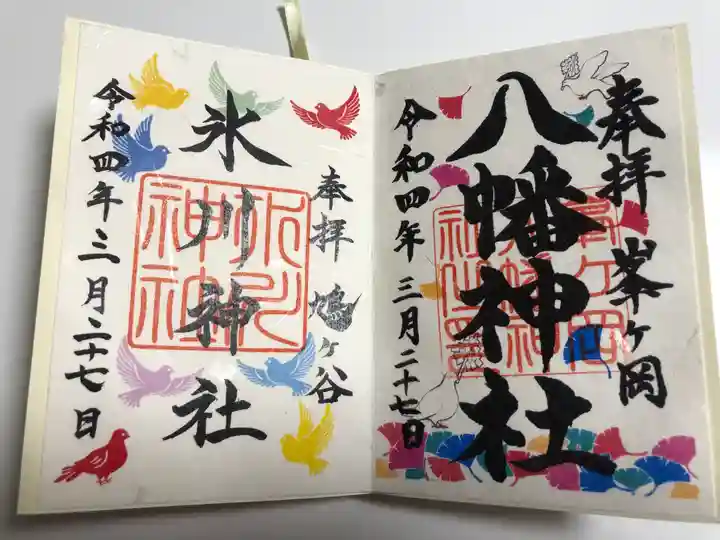 奉拝 峯ヶ岡
八幡神社
令和四年 三月二十七日
奉拝 鳩ヶ谷
氷川神社
氷川神社
令和四年 三月二十七日